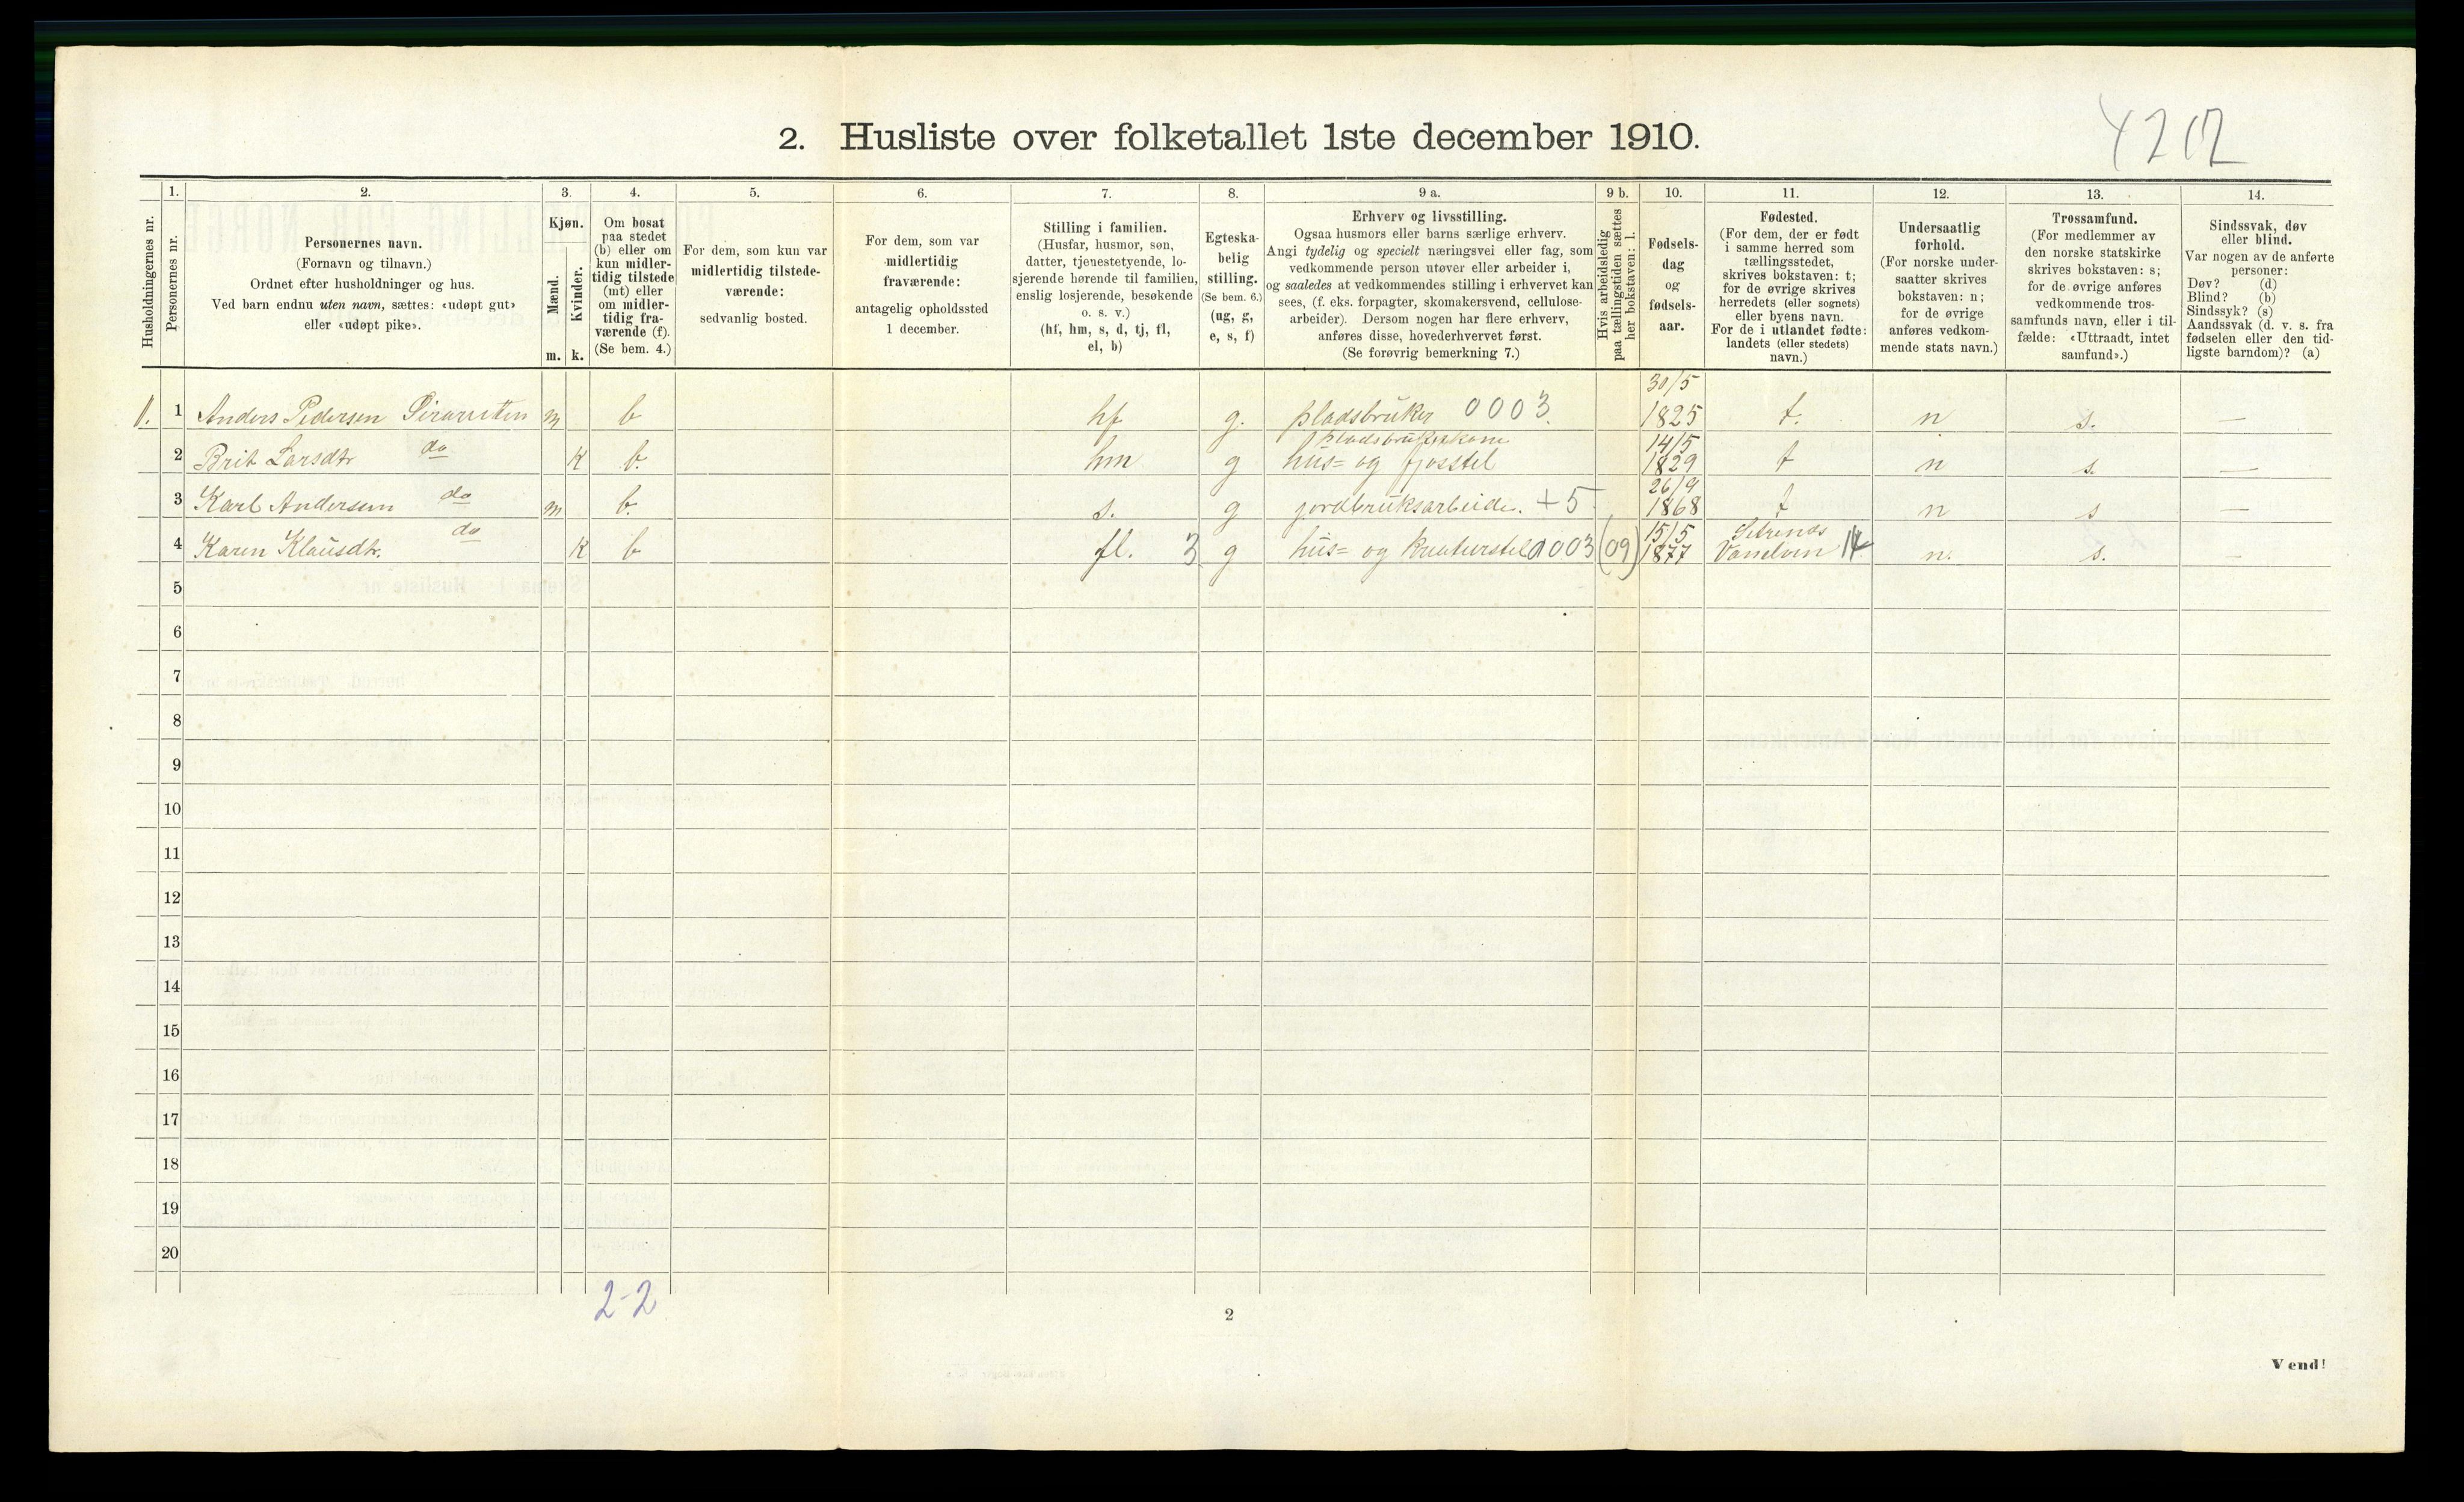 4212
2. Husliste over folketallet 1ste december 1910.
Husholdningernes nr.
1.
Personernes nr.
2.
Personernes navn.
(Fornavn og tilnavn.)
Ordnet efter husholdninger og hus.
Ved barn endnu uten navn, sættes: «udøpt gut»
eller «udøpt pike».
3.
Kjøn.
Mænd.
m.
Kvinder.
k.
4.
Om bosat
paa stedet
(b) eller om
kun midler-
tidig tilstede
(mt) eller
om midler-
tidig fra-
værende (f).
(Se bem. 4.)
5.
For dem, som kun var
midlertidig tilstede-
værende:
sedvanlig bosted.
6.
For dem, som var
midlertidig
fraværende:
antagelig opholdssted
1 december.
7.
Stilling i familien.
(Husfar, husmor, søn,
datter, tjenestetyende, lo-
sjerende hørende til familien,
enslig losjerende, besøkende
o. s. v.)
(hf, hm, s, d, tj, fl,
el, b)
8.
Egteska-
belig
stilling.
(Se bem. 6.)
(ug, g,
e, s, f)
9 a.
Erhverv og livsstilling.
Ogsaa husmors eller barns særlige erhverv.
Angi tydelig og specielt næringsvei eller fag, som
vedkommende person utøver eller arbeider i,
og saaledes at vedkommendes stilling i erhvervet kan
sees, (f. eks. forpagter, skomakersvend, cellulose-
arbeider). Dersom nogen har flere erhverv,
anføres disse, hovederhvervet først.
(Se forøvrig bemerkning 7.)
9 b.
Hvis arbeidsledig
paa tællingstiden sættes
her bokstaven: l.
10.
Fødsels-
dag
og
fødsels-
aar.
11.
Fødested.
(For dem, der er født
i samme herred som
tællingsstedet,
skrives bokstaven: t;
for de øvrige skrives
herredets (eller sognets)
eller byens navn.
For de i utlandet fødte:
landets (eller stedets)
navn.)
12.
Undersaatlig
forhold.
(For norske under-
saatter skrives
bokstaven: n;
for de øvrige
anføres vedkom-
mende stats navn.)
13.
Trossamfund.
(For medlemmer av
den norske statskirke
skrives bokstaven: s;
for de øvrige anføres
vedkommende tros-
samfunds navn, eller i til-
fælde: «Uttraadt, intet
samfund».)
14.
Sindssvak, døv
eller blind.
Var nogen av de anførte
personer:
Døv? (d)
Blind? (b)
Sindssyk? (s)
Aandssvak (d. v. s. fra
fødselen eller den tid-
ligste barndom)? (a)
1 Anders Pedersen m b hf g. pladsbruker 0003. 30/5 1825 t. n s. —
2 Brit Larsdtr do k b. hm g pladsbrukerkone hus= og fjøsstel 14/5 1829 t n s. —
3 Karl Andersen do m b. s. g jordbruksarbeide. +5 26/9 1868 t n s —
4 Karen Klausdtr. do k b fl. 3 g hus= og kreaturstel 0003 (09) 15/5 1877 Vanelven 14 n. s. —
5
6
7
8
9
10
11
12
13
14
15
16
17
18
19
20
2-2
2
Vend!